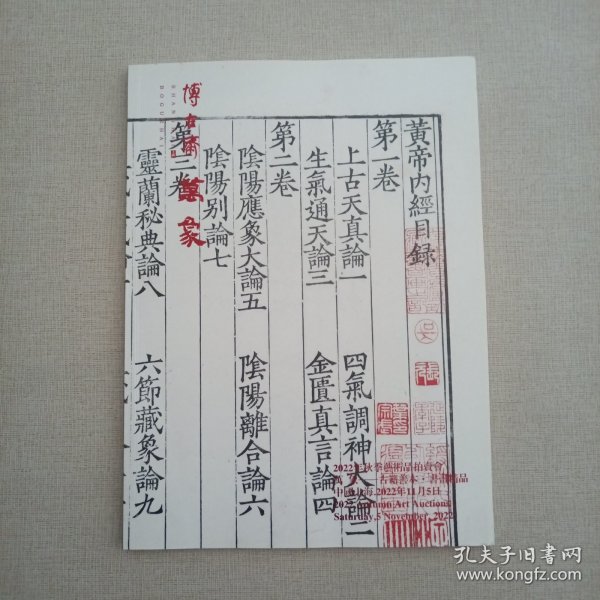 黃帝内經目録
第一卷
上古天真論一　四氣調神大論二
生氣通天論三　金匱真言論四
第二卷
陰陽應象大論五　陰陽離合論六
陰陽别論七
第三卷
靈蘭秘典論八　六節藏象論九
博古齋
萬象
BOGUZHAI
2022年秋季藝術品拍賣會
古籍善本·書畫精品
中國上海·2022年11月5日
2022 Autumn Art Auctions
Saturday,5 November, 2022
孔夫子旧书网
www.kongfz.com